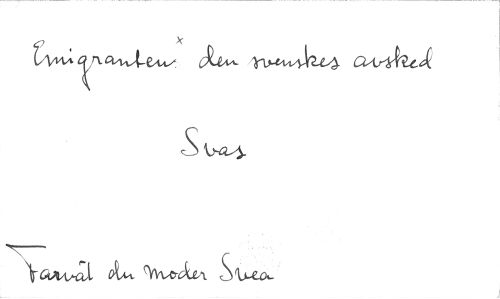 Emigranten x den svenskes avsked
Svas
Farväl du moder Svea